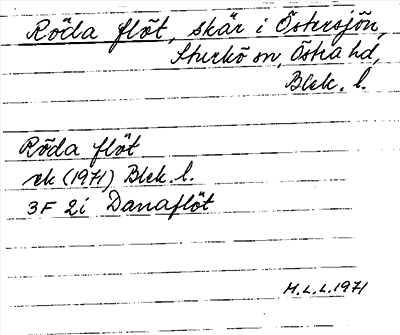 Röda flöt, skär i Östersjön,
Sturkö sn, Östra hd,
Blek. l.
Röda flöt
ek (1971) Blek. l.
3F 2i Danaflöt
M.L.L. 1971